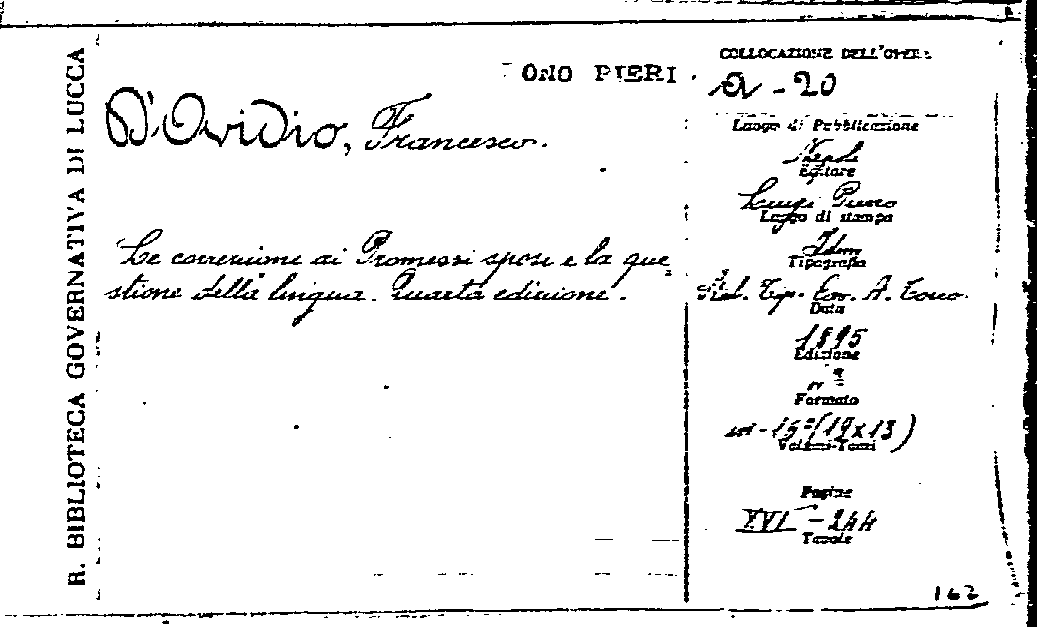 R. BIBLIOTECA GOVERNATIVA DI LUCCA
ONO PIERI
D'Ovidio, Francesco.
Le correzioni ai Promessi sposi e la que
stione della lingua. Quarta edizione.
COLLOCAZIONE DELL'OPERA
a - 20
Luogo di Pubblicazione
Napoli
Editore
Luigi Pierro
Luogo di stampa
Idem
Tipografia
Tip. A. Tocco.
Data
1895
Edizione
4ª
Formato
in-16º (19x13)
Volumi-Tomi
Pagine
XVI - 244
Tavole
162